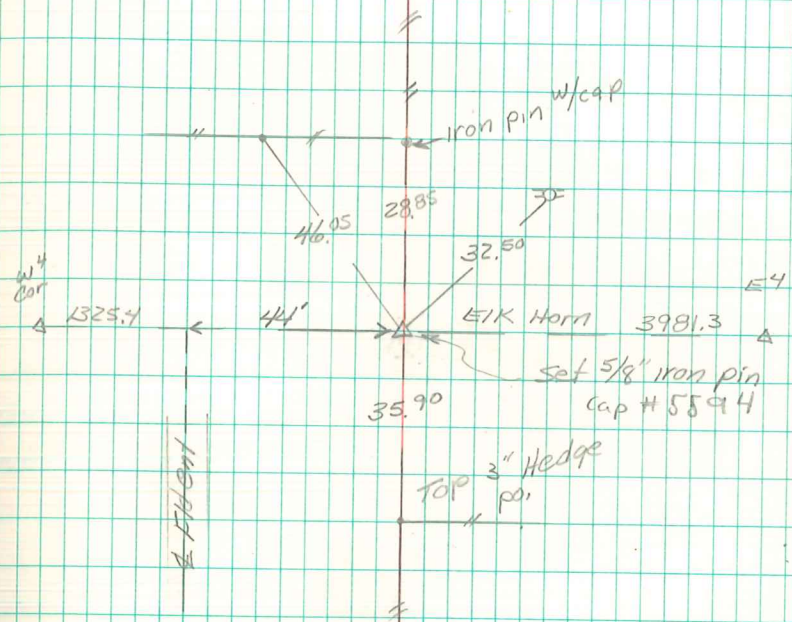 Iron pin w/cap
28.85
46.05
32.50
W4
Cor
1325.4
44'
Elk Horn
3981.3
E4
Set 5/8" Iron pin
Cap # 5594
35.90
Top 3" Hedge